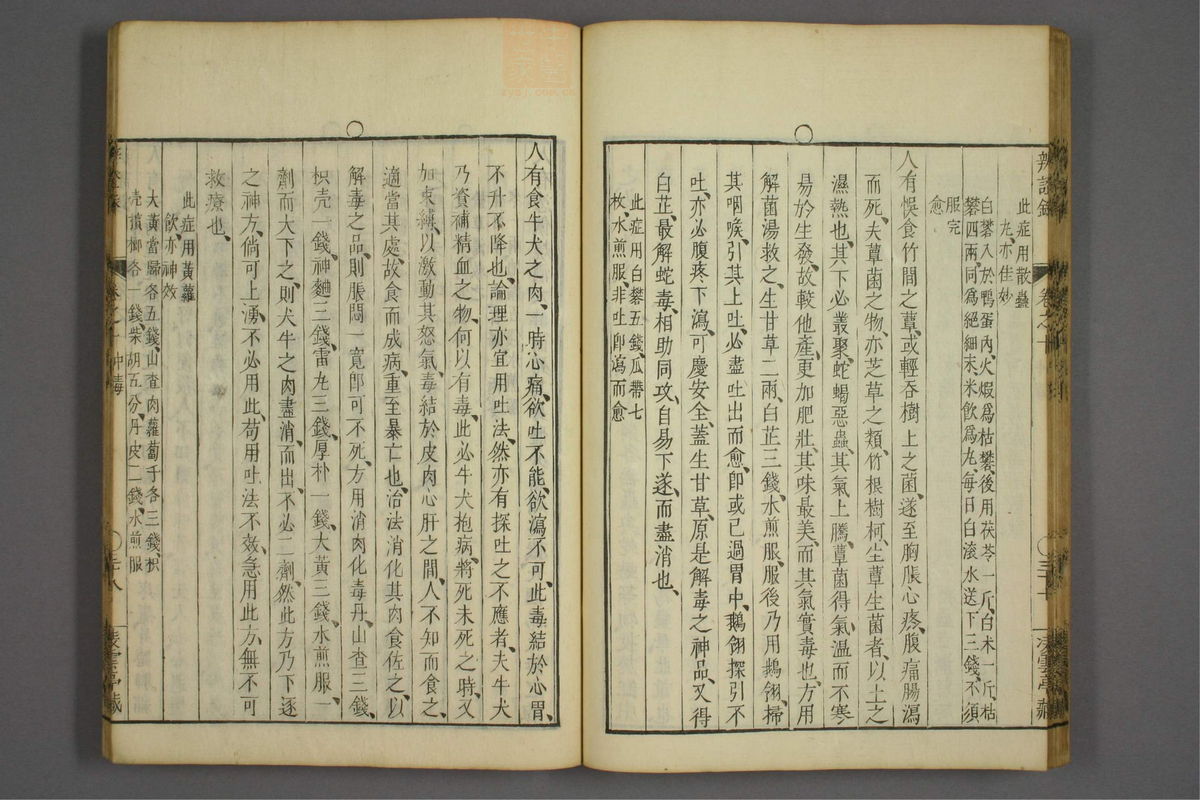 辨證錄
卷之十
凌雲亭藏
此症用散蠱
丸亦佳妙
白礬入於鴨蛋內火煅爲枯礬後用茯苓一斤白术一斤枯
礬四兩同爲絕細末米飲爲丸每日白滾水送下三錢不須
服完
愈
人有悞食竹間之蕈或輕吞樹上之菌遂至胸脹心疼腹痛腸瀉
而死夫蕈菌之物亦芝草之類竹根樹柯生蕈生菌者以上之
濕熱也其下必叢聚蛇蝎惡蟲其氣上騰蕈菌得氣溫而不寒
易於生發故較他產更加肥壯其味最美而其氣實毒也方用
解菌湯救之生甘草二兩白芷三錢水煎服服後乃用鵝翎掃
其咽喉引其上吐必盡吐出而愈卽或已過胃中鵝翎探引不
吐亦必腹疼下瀉可慶安全蓋生甘草原是解毒之神品又得
白芷最解蛇毒相助同攻自易下遂而盡消也
此症用白礬五錢瓜蒂七
枚水煎服非吐卽瀉而愈
人有食牛犬之肉一時心痛欲吐不能欲瀉不可此毒結於心胃
不升不降也論理亦宜用吐法然亦有探吐之不應者夫牛犬
乃資補精血之物何以有毒此必牛犬抱病將死未死之時又
加束縛以激動其怒氣毒結於皮肉心肝之間人不知而食之
適當其處故食而成病重至暴亡也治法消化其肉食佐之以
解毒之品則脹悶一寬卽可不死方用消肉化毒丹山查三錢
枳壳一錢神麯三錢雷丸三錢厚朴一錢大黃三錢水煎服一
劑而大下之則犬牛之肉盡消而出不必二劑然此方乃下逐
之神方倘可上湧不必用此苟用吐法不效急用此方無不可
救療也
此症用黃蘿
飲亦神效
大黃當歸各五錢山查肉蘿蔔子各三錢枳
壳檳榔各一錢柴胡五分丹皮二錢水煎服
卷之十 中毒
凌雲亭藏